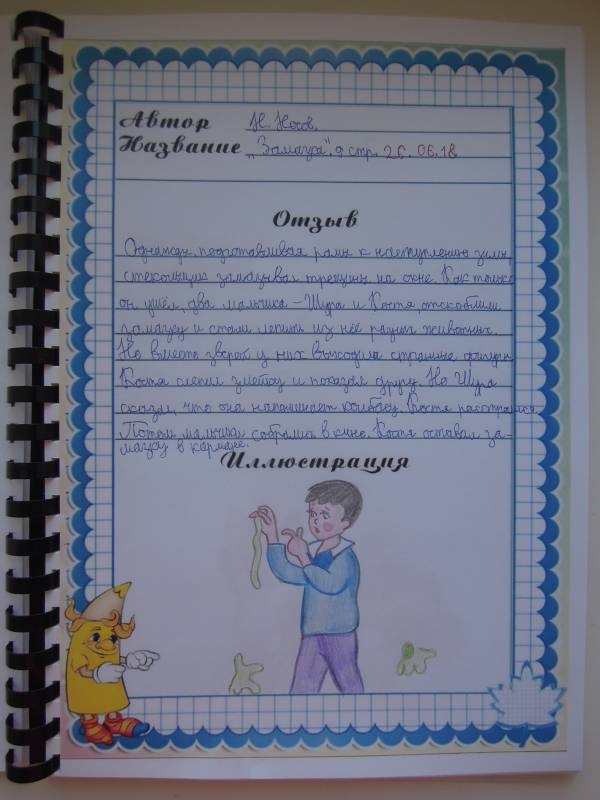 Автор Н. Носов.
Название „Замазка". 9 стр. 20.06.18
Отзыв
Однажды, подготавливая рамы к наступлению зимы,
стекольщик замазывал трещины на окне. Как только
он ушёл, два мальчика – Шура и Костя, отскоблили
замазку и стали лепить из неё разных животных.
Но вместо зверей у них выходили странные фигуры.
Костя слепил змейку и показал другу. Но Шура
сказал, что она напоминает колбасу. Костя расстроился.
Потом мальчики собрались в кино. Костя оставил за-
мазку в кармане.
Иллюстрация